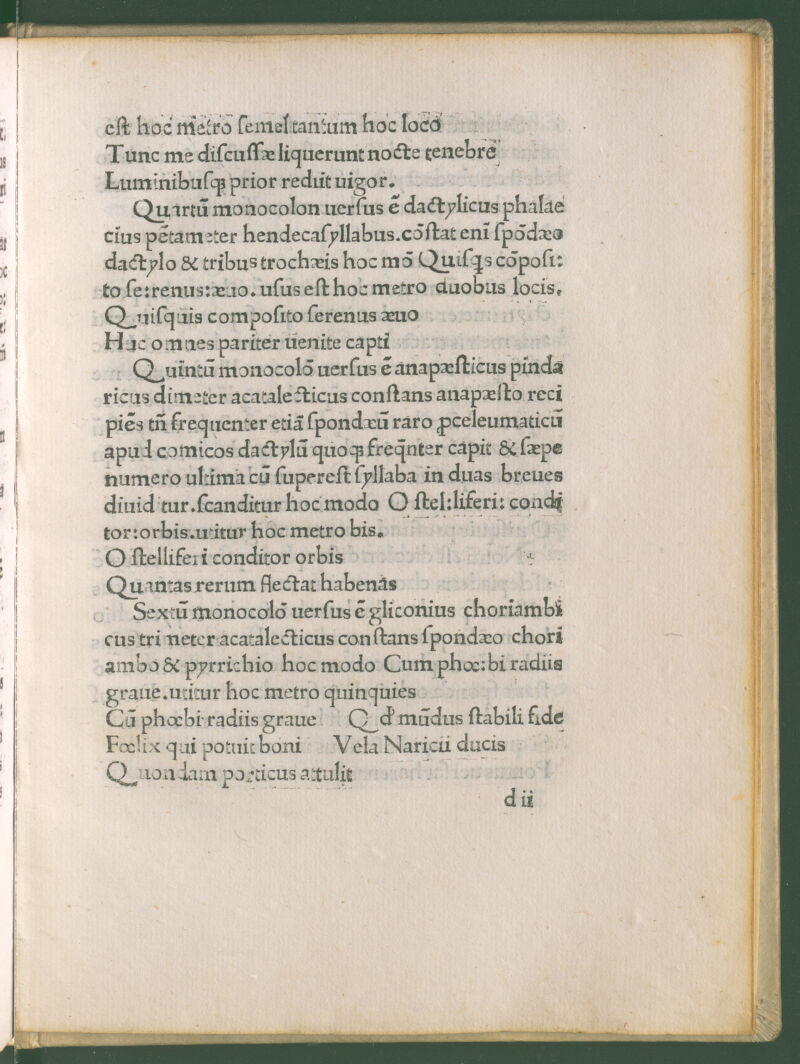 eſt hoc metro ſemel tantum hoc loco
Tunc me diſcuſſæ liquerunt nocte tenebre
Luminibuſqꝫ prior rediit uigor.
Quartū monocolon uerſus ē dactylicus phalae
cius pētameter hendecaſyllabus.cōſtat eni ſpōdæo
dactylo & tribus trochæis hoc mō Quiſqs cōpoſi:
to ſe:renus:æuo. uſus eſt hoc metro duobus locis.
Quiſquis compoſito ſerenus æuo
Huc omnes pariter uenite capti
Quintū monocolō uerſus ē anapæſticus pinda
ricus dimeter acatalecticus conſtans anapæſto reci
piēs tn̄ frequenter etiā ſpondæū raro ꝓceleumaticū
apud comicos dactylū quoqꝫ freqnter capit & ſæpe
numero ultima cū ſupereſt ſyllaba in duas breues
diuiditur.ſcanditur hoc modo O ſtel:liferi: condi
tor:orbis.utitur hoc metro bis.
O ſtelliferi conditor orbis
Quantas rerum flectat habenas
Sextū monocolō uerſus ē gliconius choriambi
cus trimeter acatalecticus conſtans ſpondæo chori
ambo & pyrrichio hoc modo Cum phœ:bi radiis
graue.utitur hoc metro quinquies
Cū phœbi radiis graue Q d̕ mūdus ſtabili fide
Fœlix qui potuit boni Vela Naricii ducis
Quondam porticus attulit
d ii